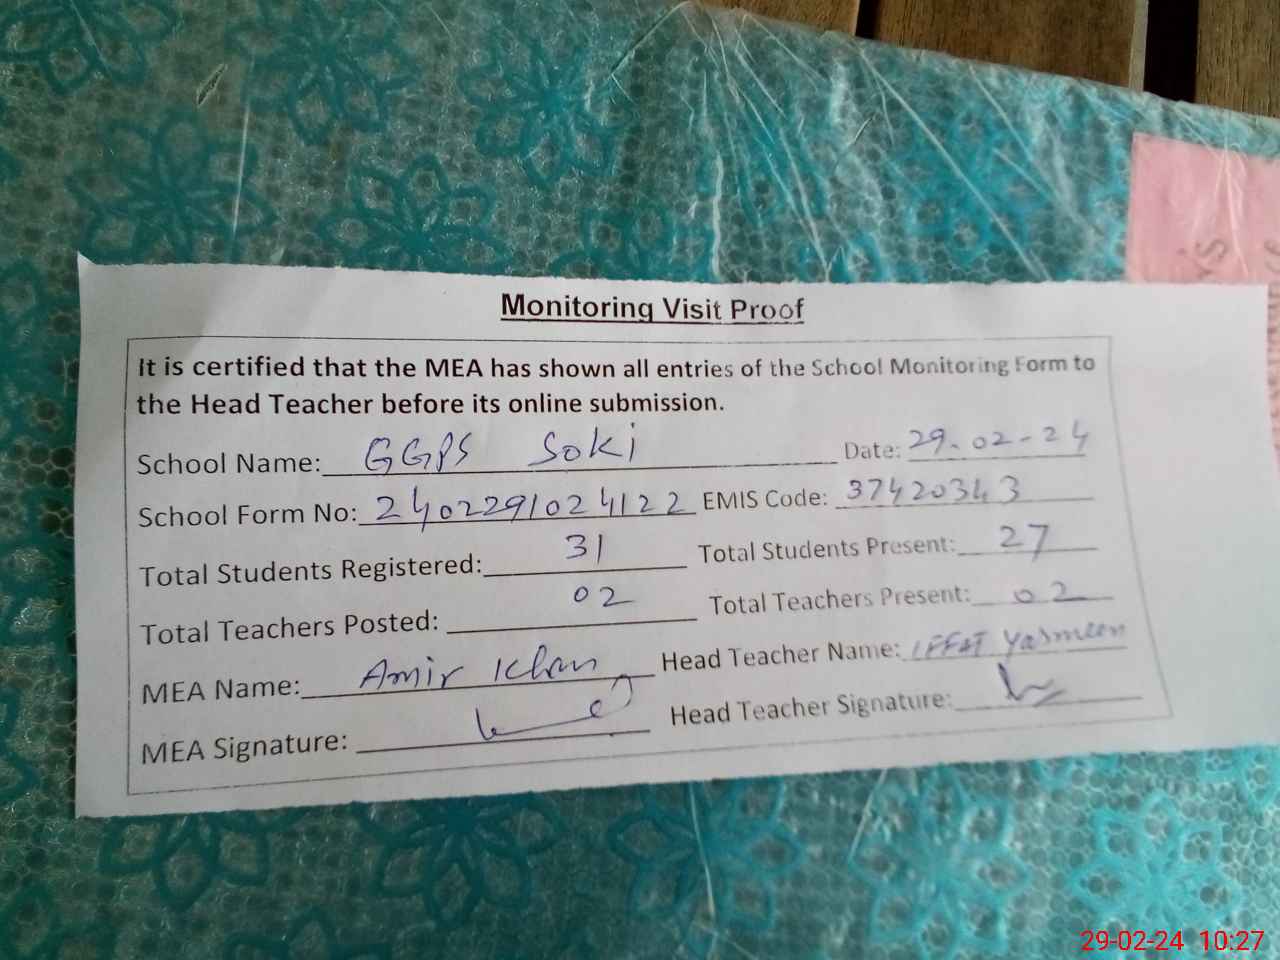 Monitoring Visit Proof
It is certified that the MEA has shown all entries of the School Monitoring Form to
the Head Teacher before its online submission.
School Name: GGPS Soki Date: 29-02-24
School Form No: 2402291024122 EMIS Code: 37420343
Total Students Registered: 31 Total Students Present: 27
Total Teachers Posted: 02 Total Teachers Present: 02
MEA Name: Amir Khan Head Teacher Name: IFFAT Yasmeen
MEA Signature: Head Teacher Signature:
29-02-24 10:27